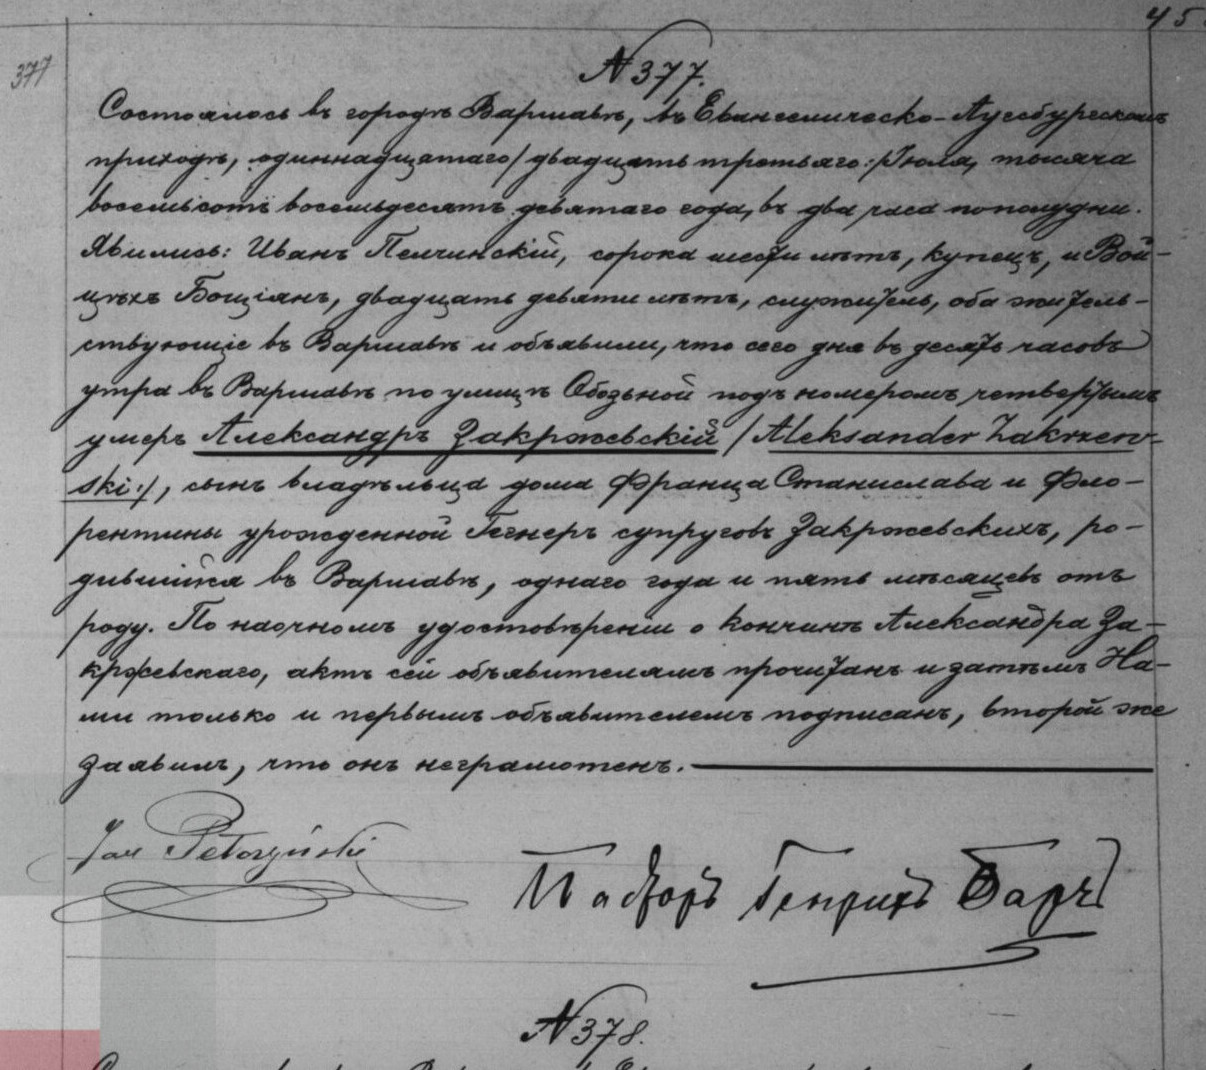 45
377
N 377.
Состоялось въ городѣ Варшавѣ, въ Евангелическо-Аугсбургскомъ
приходѣ, одиннадцатаго/двадцать третьяго:/Іюля, тысяча
восемьсотъ восемьдесятъ девятаго года, въ два часа пополудни.
Явились: Иванъ Пелчинскій, сорока шести лѣтъ, купецъ, и Вой-
цѣхъ Боціянъ, двадцать девяти лѣтъ, служитель, оба житель-
ствующіе въ Варшавѣ и объявили, что сего дня въ десять часовъ
утра въ Варшавѣ по улицѣ Обозьной подъ номеромъ четвертымъ
умеръ Александръ Закржевскій /Aleksander Zakrzew-
ski:/, сынъ владѣльца дома Франца Станислава и Фло-
рентины урожденной Гегнеръ супруговъ Закржевскихъ, ро-
дившійся въ Варшавѣ, однаго года и пять мѣсяцевъ отъ
роду. По наочномъ удостовѣреніи о кончинѣ Александра За-
кржевскаго, актъ сей объявителямъ прочитанъ и затѣмъ На-
ми только и первымъ объявителемъ подписанъ, второй же
заявилъ, что онъ неграмотенъ.
Jan Pełczyński
Пасторъ Генрихъ
N 378.